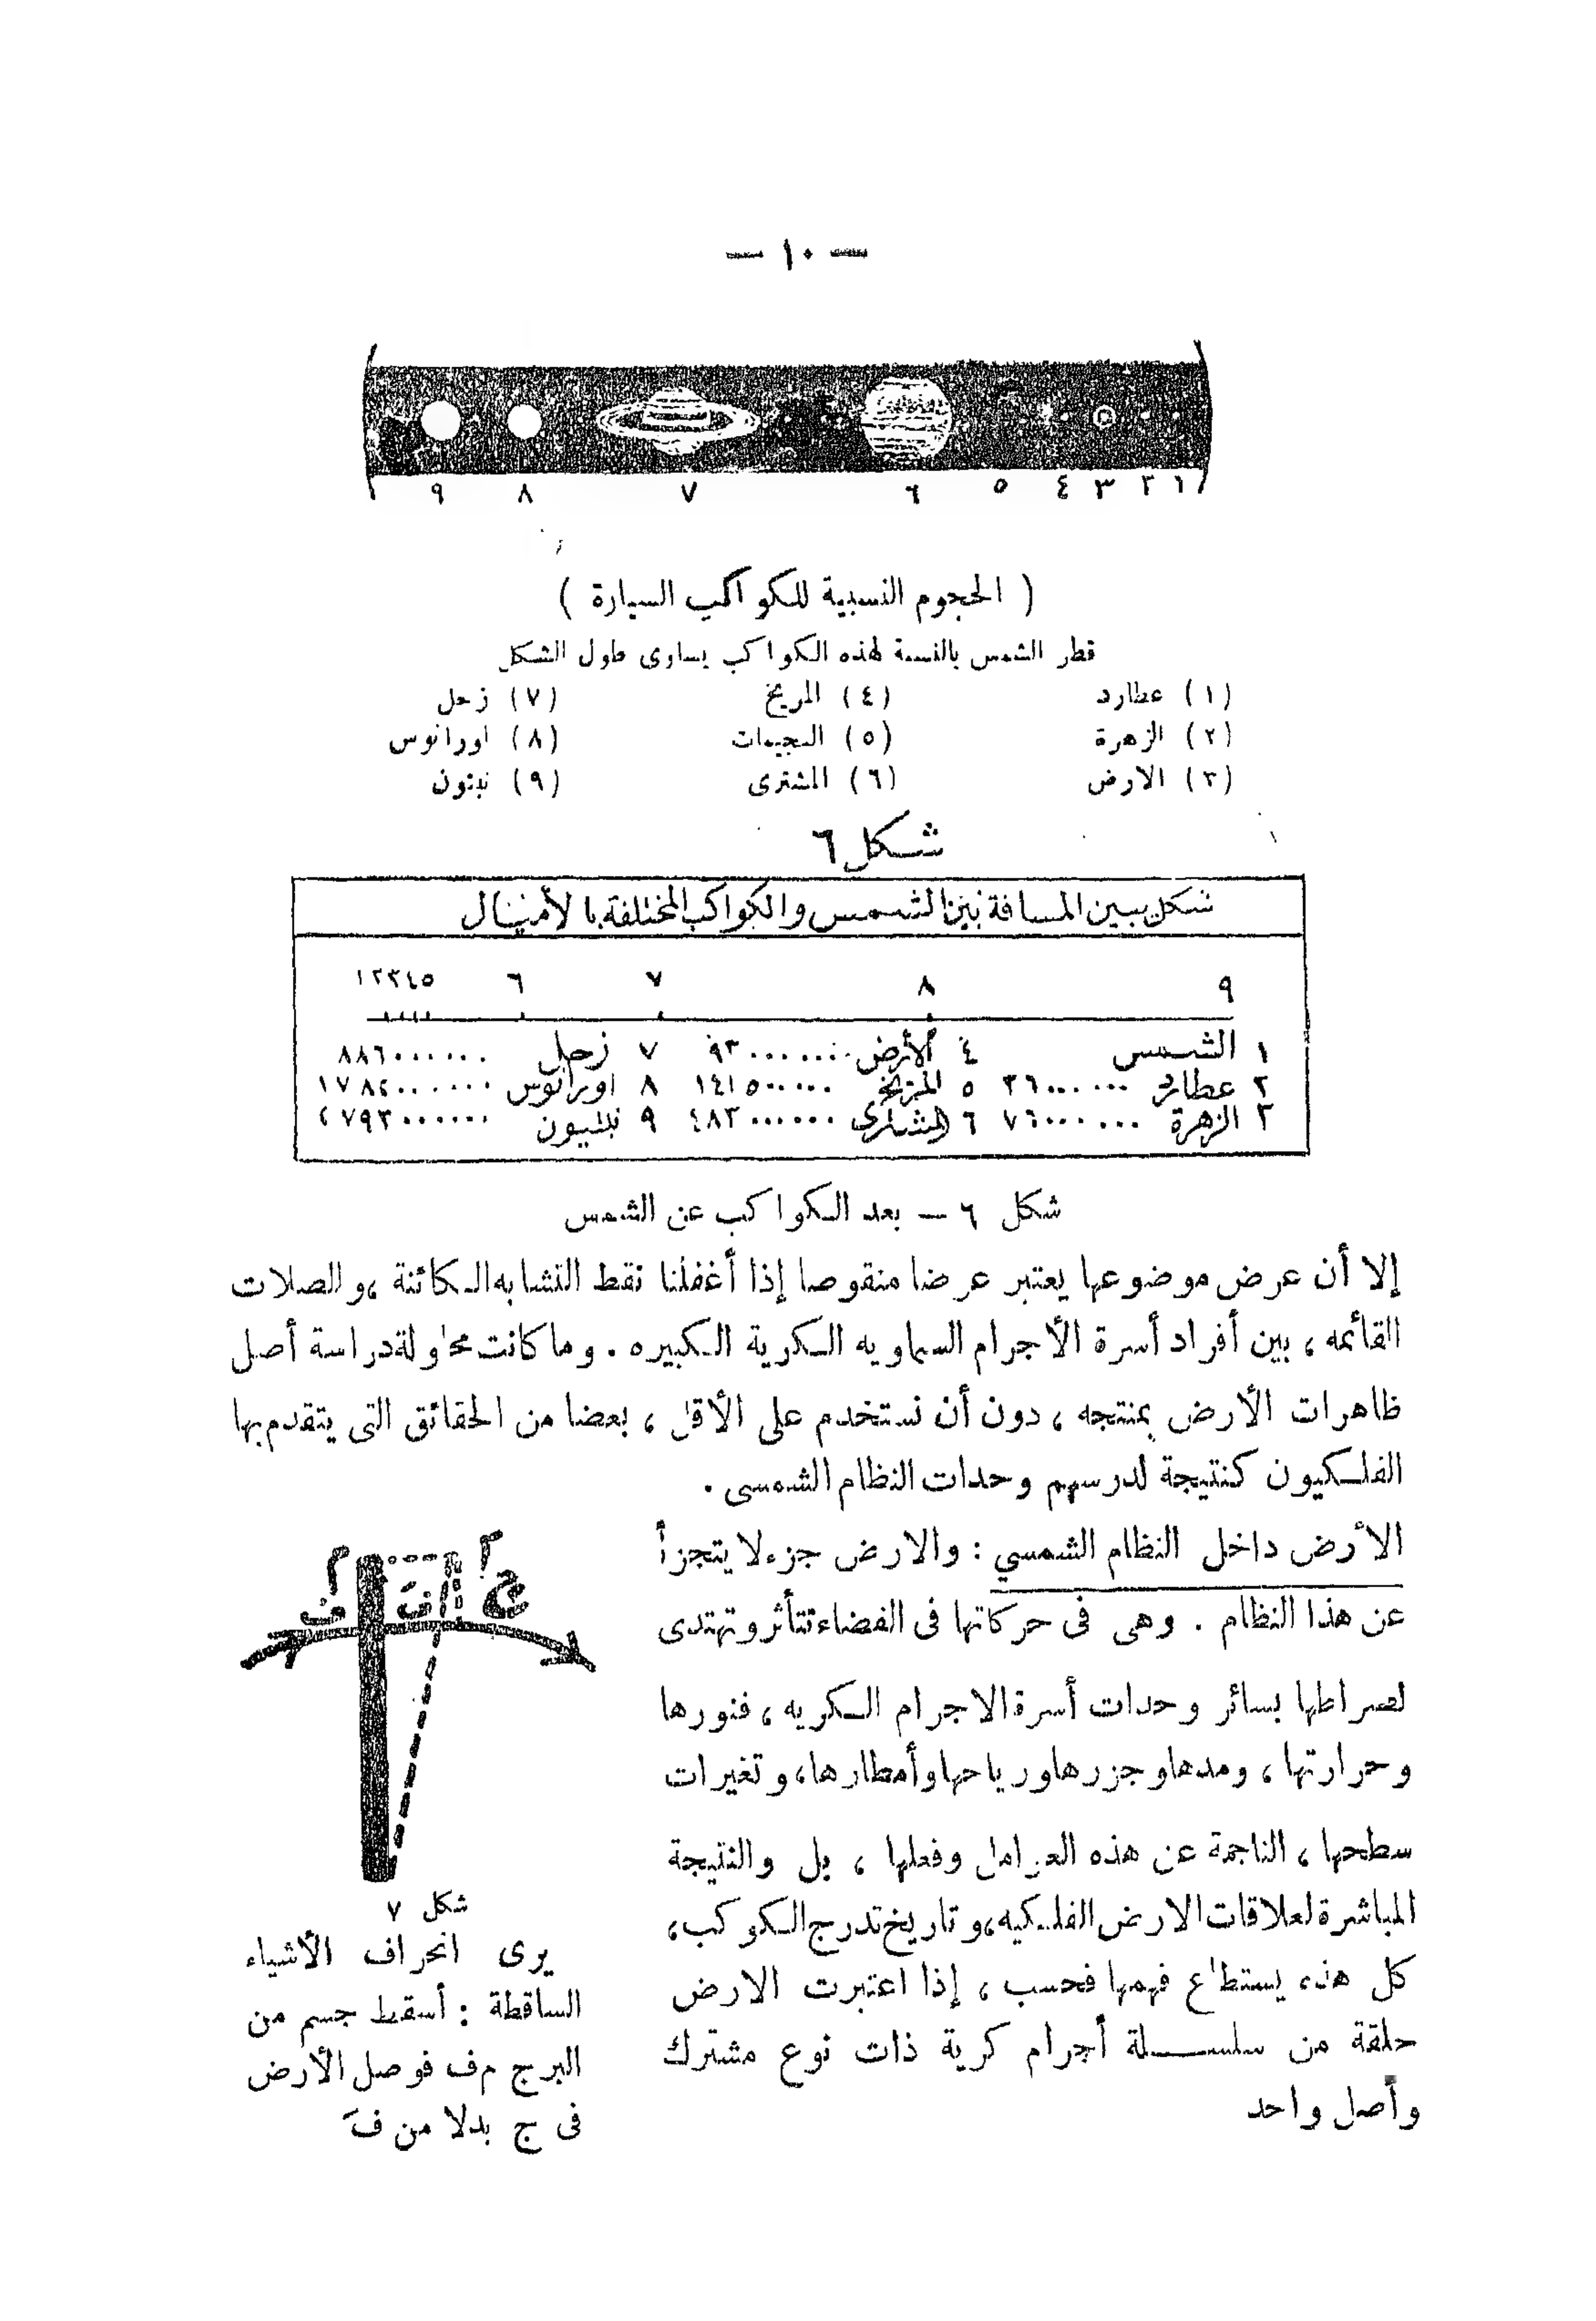 — ١٠ —
٩ ٨ ٧ ٦ ٥ ٤ ٣ ٢ ١
( الحجوم النسبية للكواكب السيارة )
قطر الشمس بالنسبة لهذه الكواكب يساوى طول الشكل
(١) عطارد (٤) المريخ (٧) زحل
(٢) الزهرة (٥) النجيمات (٨) اورانوس
(٣) الارض (٦) المشترى (٩) نبتون
شكل ٦
شكل يبين المسافة بين الشمس والكواكب المختلفة بالأميال
١٢٣٤٥ ٦ ٧ ٨ ٩
١ الشمس ٤ الأرض ٩٣٠٠٠٠٠٠ ٧ زحل ٨٨٦٠٠٠٠٠٠
٢ عطارد ٣٦٠٠٠٠٠٠ ٥ المريخ ١٤١٥٠٠٠٠٠ ٨ اورانوس ١٧٨٢٠٠٠٠٠٠
٣ الزهرة ٧٦٠٠٠٠٠٠ ٦ المشترى ٤٨٣٠٠٠٠٠٠ ٩ نبتيون ٢٧٩٣٠٠٠٠٠٠
شكل ٦ — بعد الكواكب عن الشمس
إلا أن عرض موضوعها يعتبر عرضا منقوصا إذا أغفلنا نقط التشابه الكائنة ، والصلات
القائمه ، بين أفراد أسرة الأجرام السماويه الكرية الكبيره . وما كانت محاولة دراسة أصل
ظاهرات الأرض بمنتجه ، دون أن نستخدم على الأقل ، بعضا من الحقائق التى يتقدم بها
الفلكيون كنتيجة لدرسهم وحدات النظام الشمسى .
الأرض داخل النظام الشمسي : والارض جزء لا يتجزأ
عن هذا النظام . وهى فى حركاتها فى الفضاء تتأثر وتهتدى
لصراطها بسائر وحدات أسرة الاجرام الكريه ، فنورها
وحرارتها ، ومدها وجزرها ورياحها وأمطارها ، وتغيرات
سطحها ، الناجمة عن هذه العوامل وفعلها ، بل والنتيجة
المباشرة لعلاقات الارض الفلكيه ، وتاريخ تدرج الكوكب ،
كل هذه يستطاع فهمها فحسب ، إذا اعتبرت الارض
حلقة من سلسلة أجرام كرية ذات نوع مشترك
وأصل واحد
م أ
ف فَ ج
شكل ٧
يرى انحراف الأشياء
الساقطة : أسقط جسم من
البرج م ف فوصل الأرض
فى ج بدلا من فَ